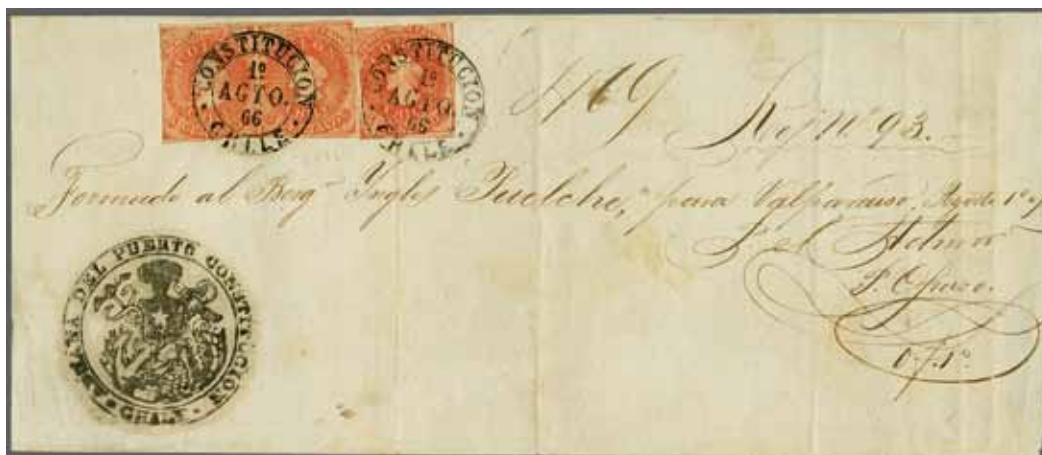 CONSTITUCION
1º
AGTO.
66
CHILE
CONSTITUCION
1º
AGTO.
66
CHILE
469
Rej Nº 93.
Formado al Berg Yngles Puelche, para Valparaiso, Agosto 1º
P. el
1º
ADUANA DEL PUERTO CONSTITUCION
CHILE